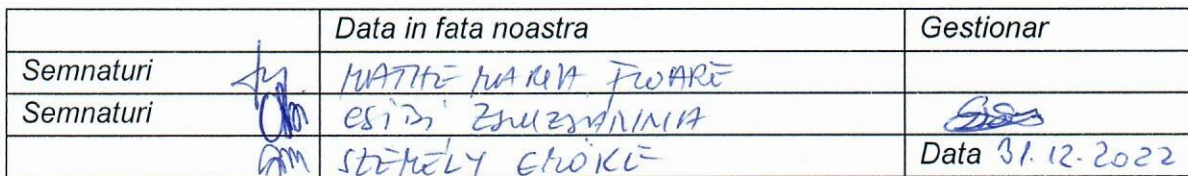 Data in fata noastra Gestionar
Semnaturi MATHE MARIA FLOARE
Semnaturi CSIBI ZSUZSANNA
SZEMÉLY EMŐKE Data 31.12.2022